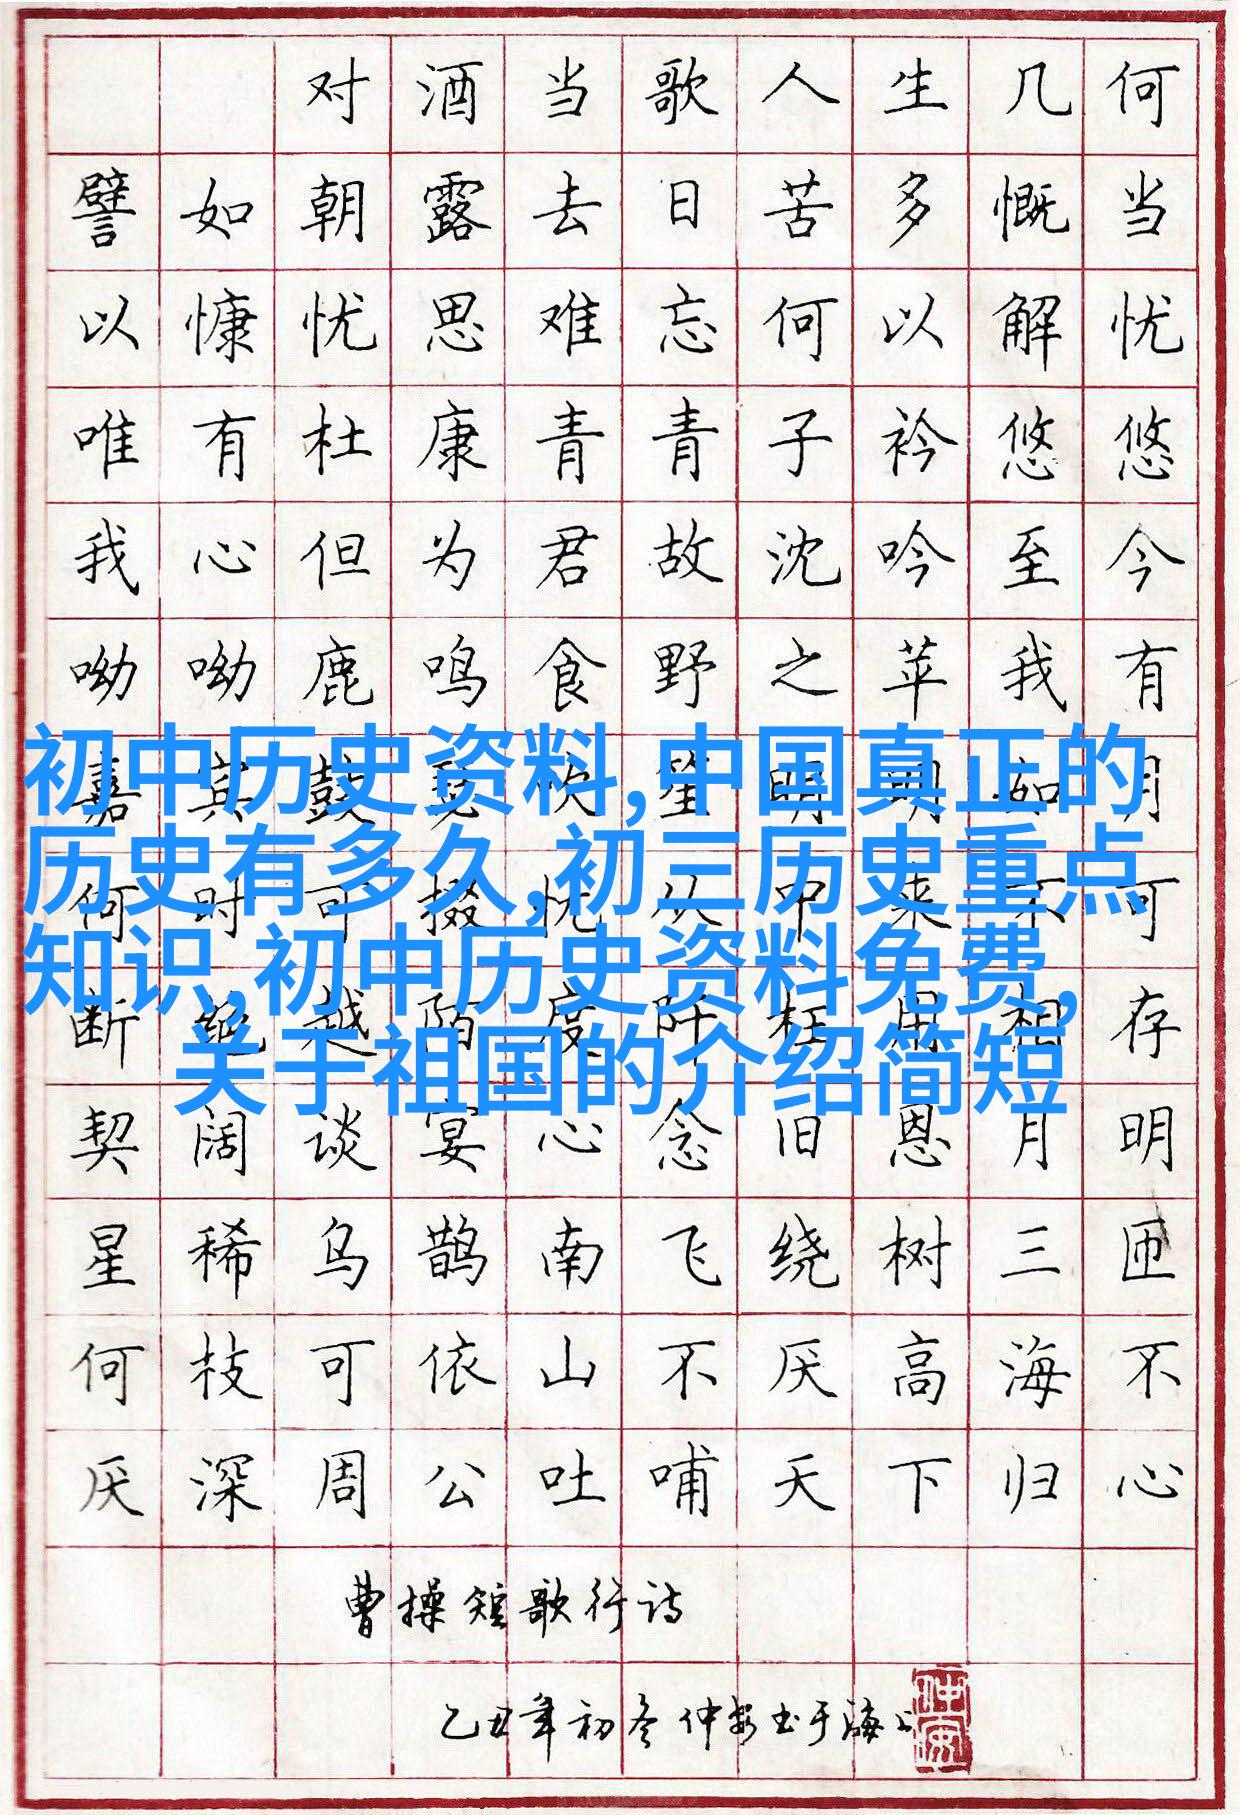 对酒当歌人生几何
譬如朝露去日苦多慨当
以慷忧思难忘何以解忧
唯有杜康青青子衿悠悠
我心但为君故沈吟至今
呦呦鹿鸣食野之苹我有
嘉宾鼓瑟吹笙明明如月
初中历史资料,中国真正的
历史有多久,初三历史重点
何时可掇忧从中来不可
知识,初中历史资料免费,
断绝越陌度阡枉用相存
关于祖国的介绍简短
契阔谈宴心念旧恩月明
星稀乌鹊南飞绕树三匝
何枝可依山不厌高海不
厌深周公吐哺天下归心
曹操短歌行诗
乙丑年初冬仲安书于海上
仲安